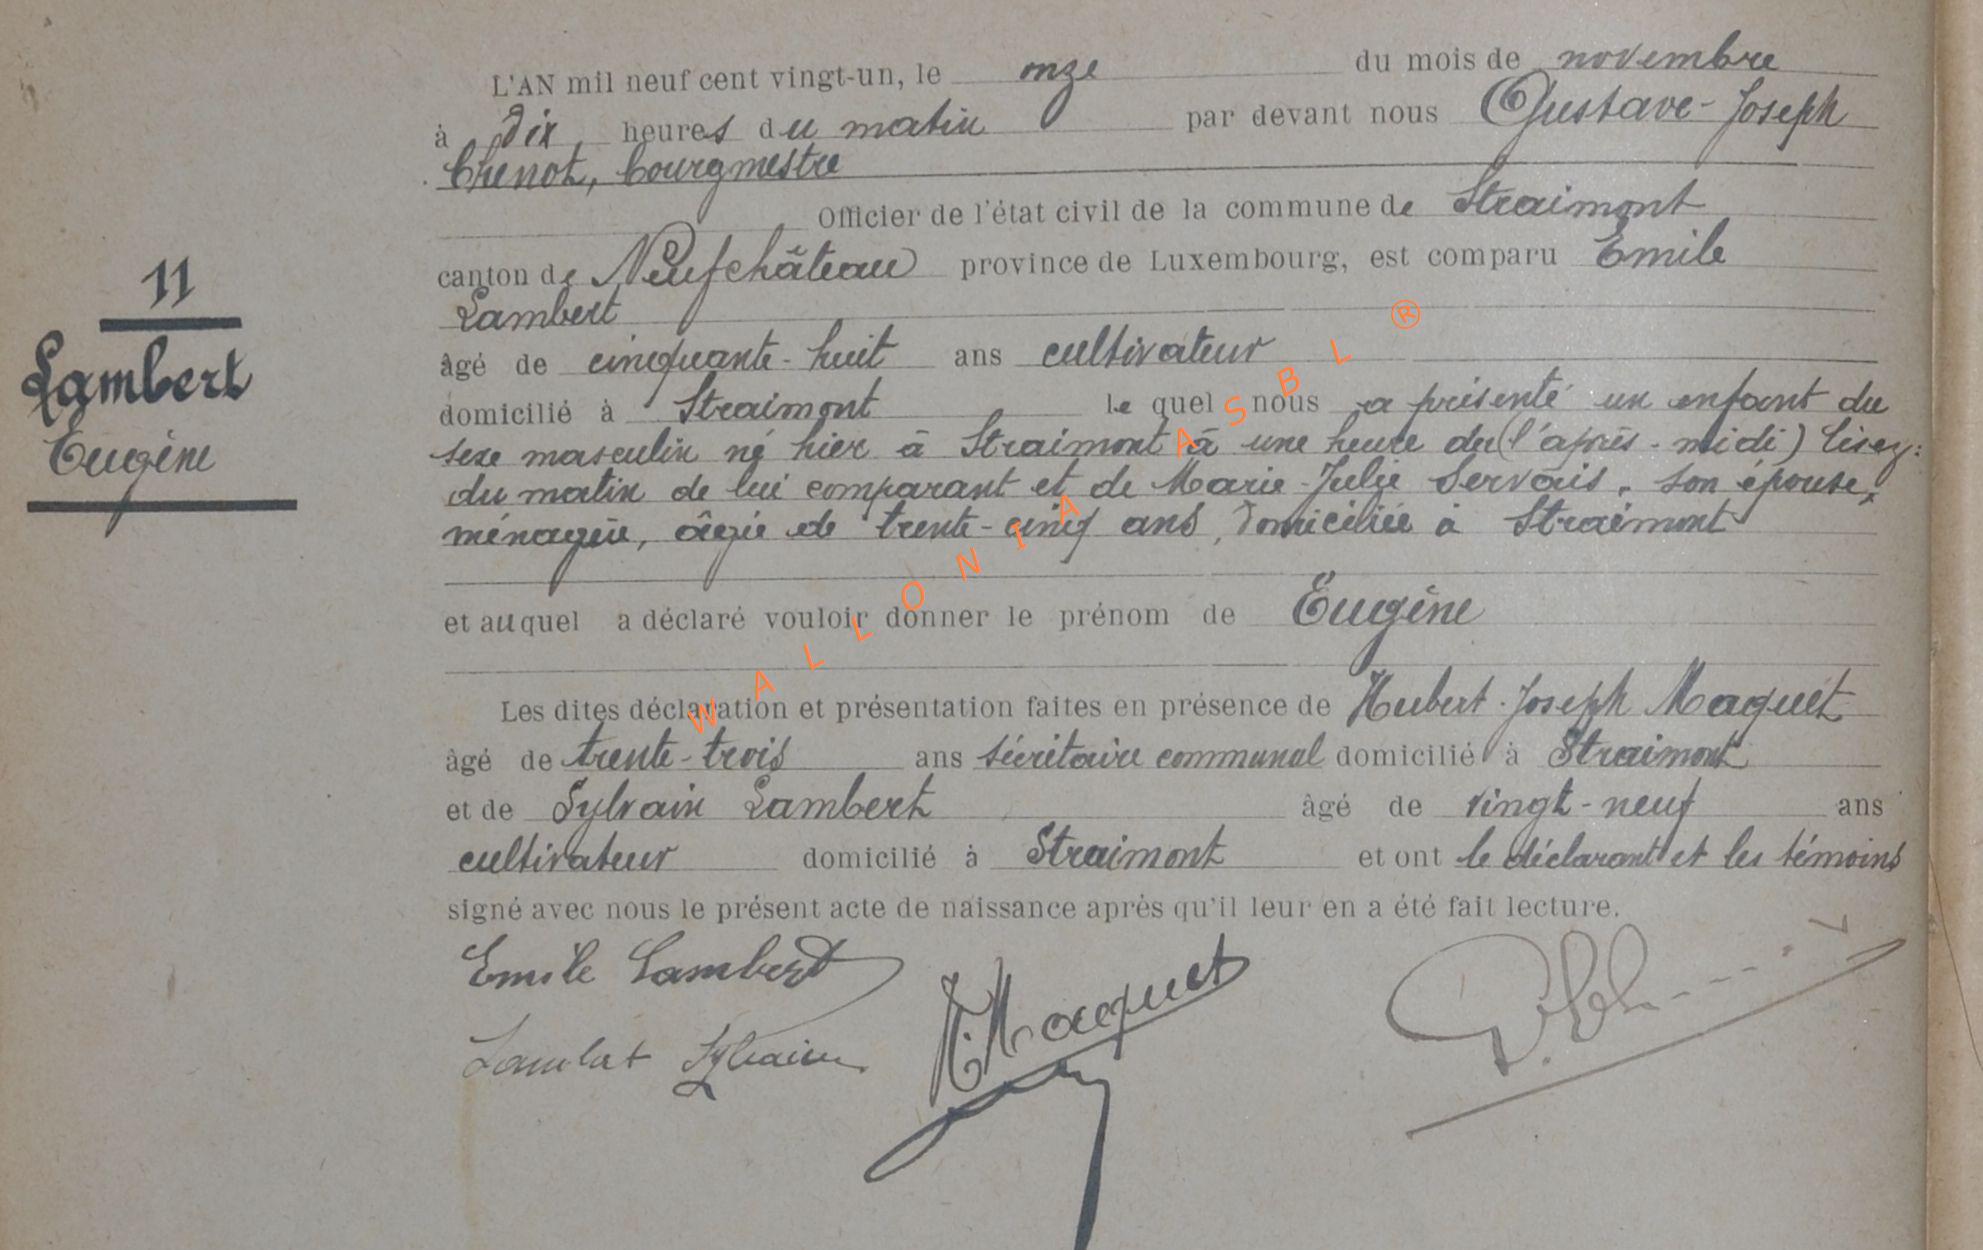 L'AN mil neuf cent vingt-un, le onze du mois de novembre
à dix heures du matin par devant nous Gustave-Joseph
Chenot, bourgmestre
Officier de l'état civil de la commune de Straimont
canton de Neufchâteau province de Luxembourg, est comparu Emile
Lambert
âgé de cinquante-huit ans cultivateur
domicilié à Straimont le quel nous a présenté un enfant du
sexe masculin né hier à Straimont à une heure de (l'après-midi) lisez:
du matin de lui comparant et de Marie-Julie Servais, son épouse,
ménagère, âgée de trente-cinq ans, domiciliée à Straimont
et auquel a déclaré vouloir donner le prénom de Eugène
Les dites déclaration et présentation faites en présence de Hubert-Joseph Maquet
âgé de trente-trois ans secrétaire communal domicilié à Straimont
et de Sylvain Lambert âgé de vingt-neuf ans
cultivateur domicilié à Straimont et ont le déclarant et les témoins
signé avec nous le présent acte de naissance après qu'il leur en a été fait lecture.
Emile Lambert
H. Macquet
Lambert Sylvain
11
Lambert
Eugène
WALLONIA ASBL ®